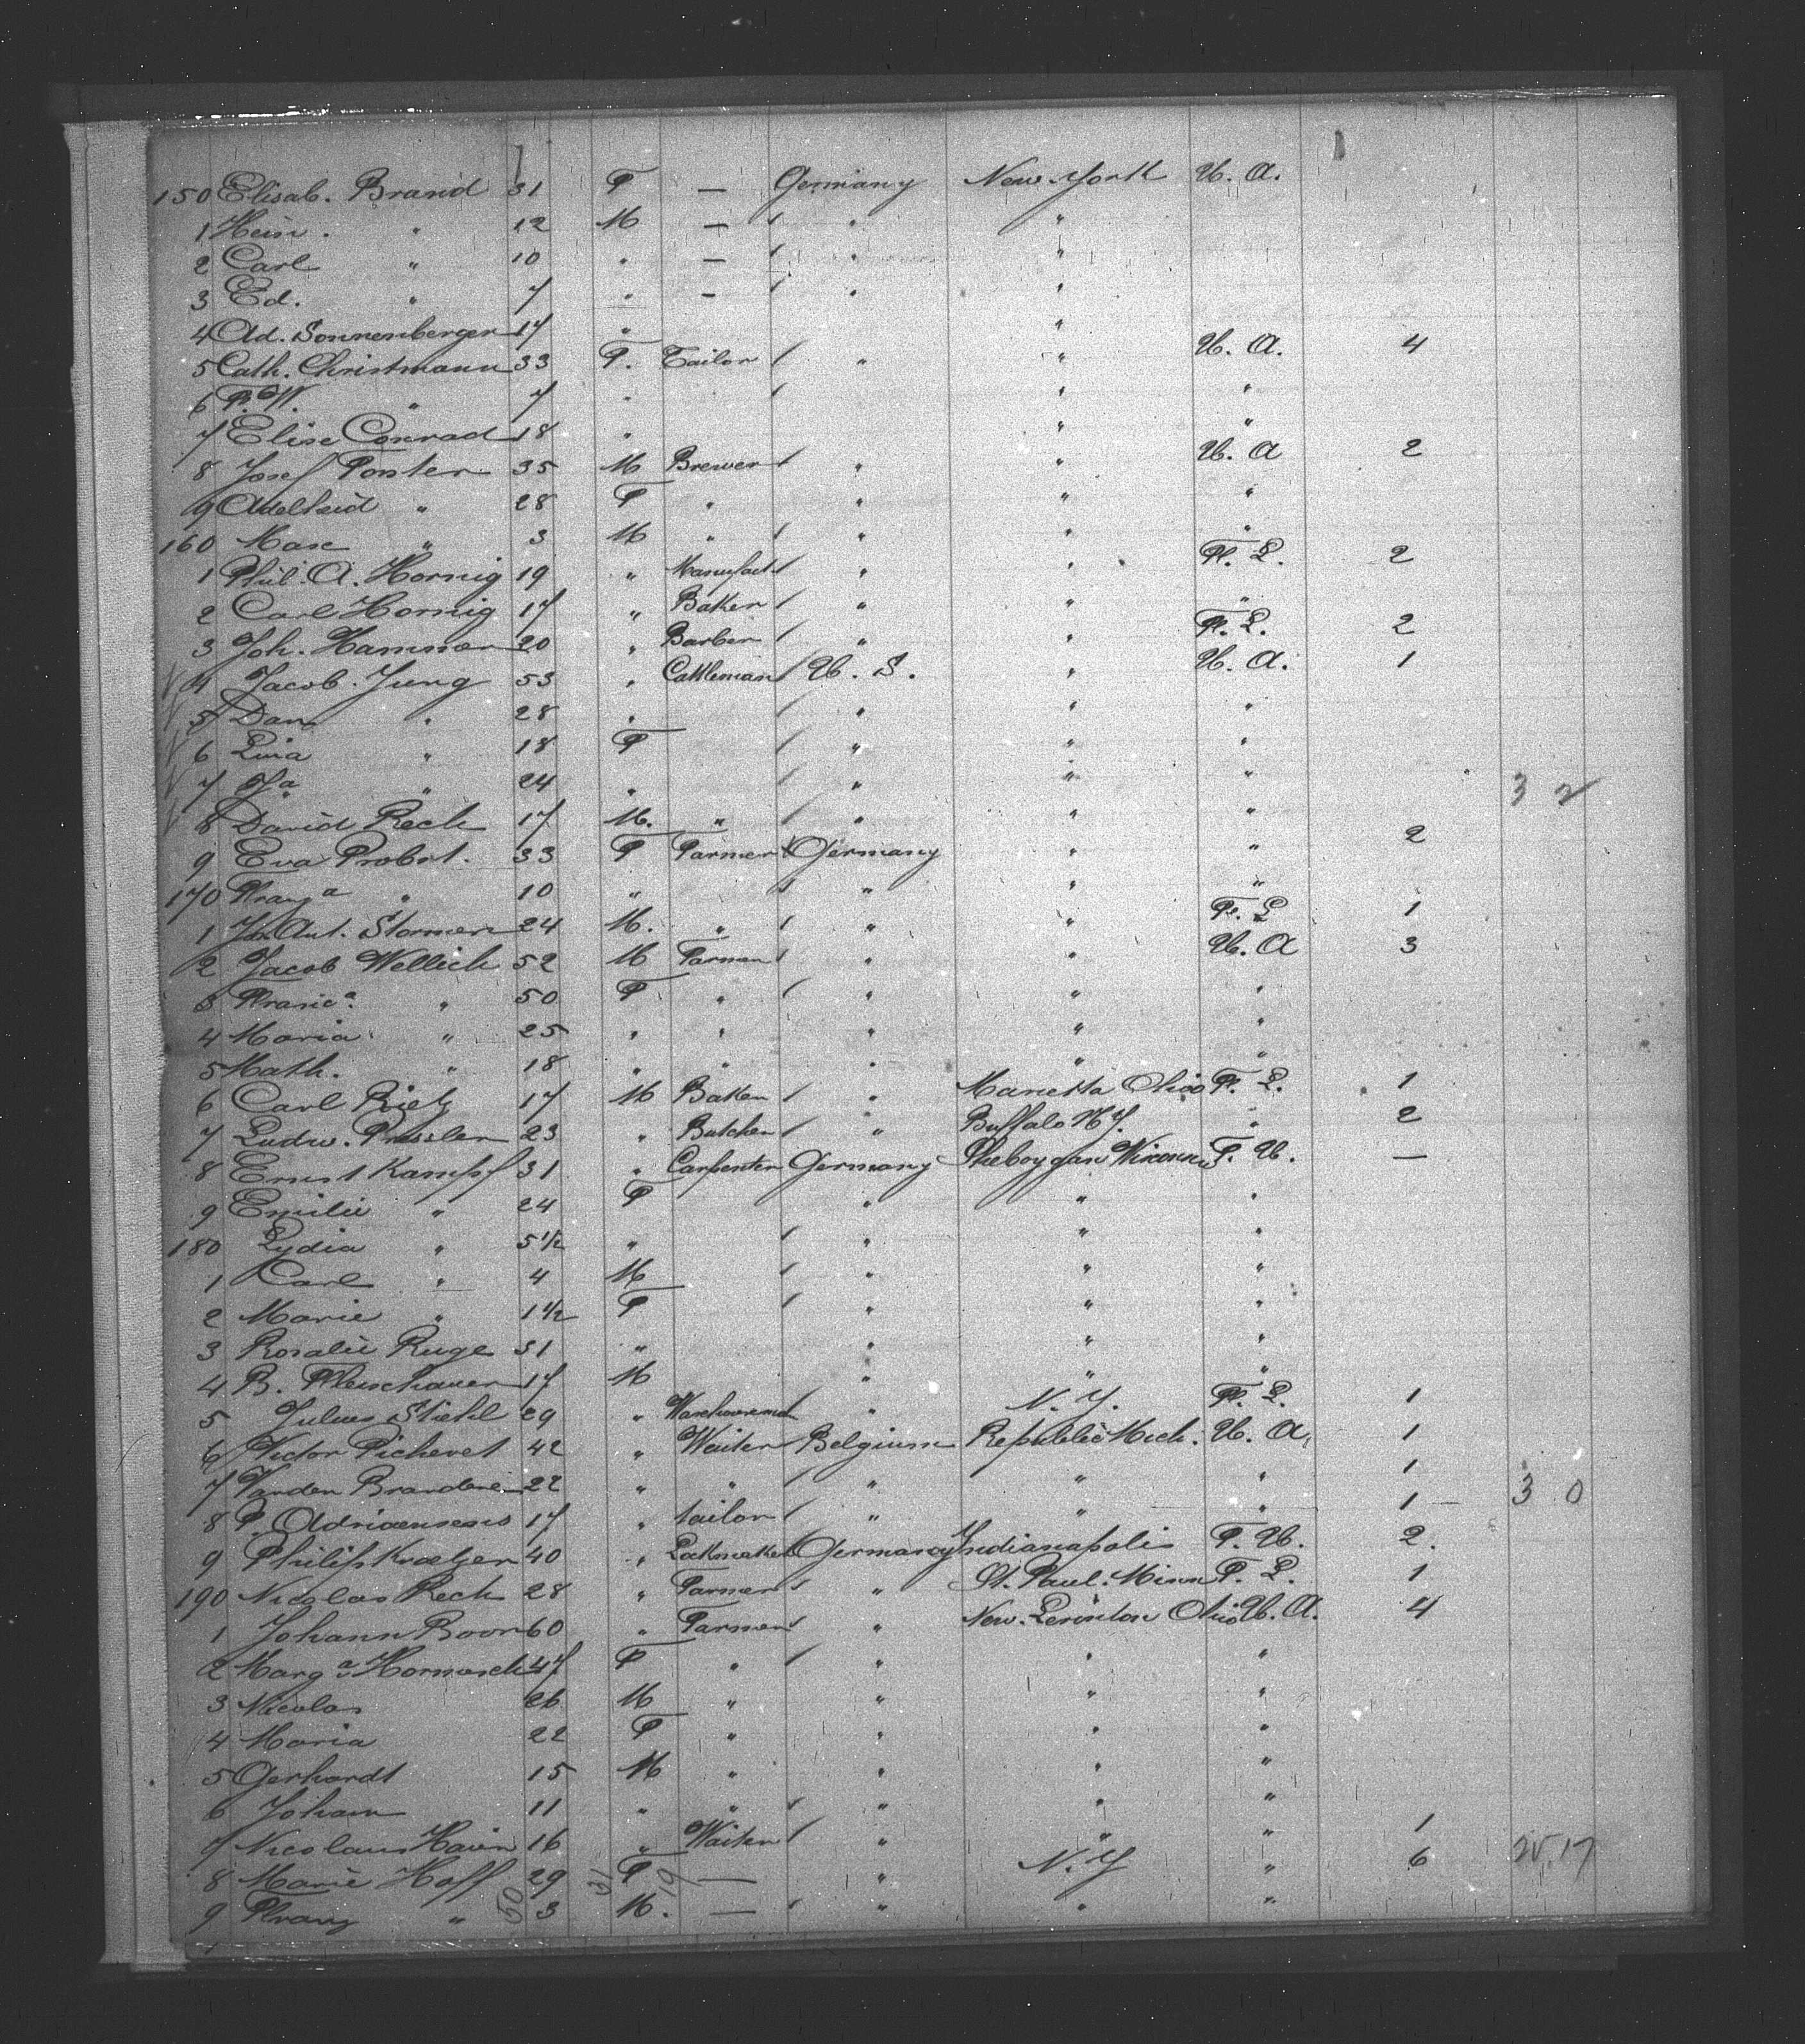 150 Elisab. Brand 31 F — Germany New York U. A.
1 Hein. " 12 M — " "
2 Carl " 10 " — " "
3 Ed. " 7 " — " "
4 Ad. Sonnenberger 17 " "
5 Cath. Christmann 33 F. Tailor " " U. A. 4
6 P. W. " 7 " " "
7 Elise Conrad 18 " " "
8 Josef Forster 35 M Brewer " " U. A 2
9 Adelheid " 28 F " " " "
160 Max " 3 M " " " "
1 Phil. A. Hornig 19 " Manufact " " F. L. 2
2 Carl Hornig 17 " Baker " " "
3 Joh. Hammer 20 " Barber " " F. L. 2
4 Jacob Jung 53 " Cattleman U. S. " U. A. 1
5 Dan " 28 " " " "
6 Lina " 18 F " " "
7 " 24 " " " " 3 2
8 David Rech 17 M. " " " "
9 Eva Probst. 33 F Farmer Germany " " 2
170 Franz a " 10 " " " "
1 Ant. Stormer 24 M. " " " F. L 1
2 Jacob Wellich 52 M Farmer " " U. A 3
3 Franc a. " 50 F " " " "
4 Maria " 25 " " " " "
5 Math. " 18 " " " " "
6 Carl Rietz 17 M Baker " Marietta Ohio F. L. 1
7 Ludw. Pressler 23 " Butcher " Buffalo N Y. " 2
8 Ernst Kampf 31 " Carpenter Germany Sheboygan Wisconsin F. U. —
9 Emilie " 24 F " " "
180 Lydia " 5 1/2 " " " "
1 Carl " 4 M " " "
2 Marie " 1 1/2 F " " "
3 Rosalie Ruge 51 " " " "
4 B. Fleischauer 17 M " " "
5 Julius Stiehl 29 " Warehouseman " N. Y. F. L. 1
6 Victor Picheret 42 " Waiter Belgium Republic Mich. U. A. 1
7 Vanden Brandene 22 " " " " " 1 3 0
8 P. Adriaensens 17 " tailor " " " 1
9 Philip Kraetzer 40 " Lockmaker Germany Indianapolis F. U. 2.
190 Nicolas Rech 28 " Farmer " St. Paul. Minn F. L. 1
1 Johann Boor 60 " Farmer " New. Ohio U. A. 4
2 Marg a 47 F " " " "
3 Nicolas 26 M " " " "
4 Maria 22 F " " " "
5 Gerhardt 15 M " " " "
6 Johann 11 " " " " "
7 Nicolaus Haien 16 " Waiter " " " 1
8 Marie Hoff 29 F — " N. Y " 6 17
9 Franz " 3 M. — " " "
50 31 19